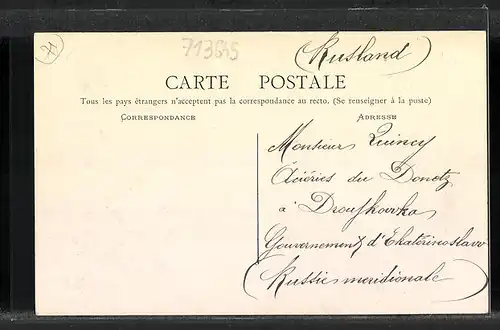 71
713865
(Rusland)
CARTE POSTALE
Tous les pays étrangers n'acceptent pas la correspondance au recto. (Se renseigner à la poste)
CORRESPONDANCE
ADRESSE
Monsieur Quincy
Aciéries du Donetz
à Droujkovka
Gouvernement d'Ekaterinoslavv
(Russie meridionale)